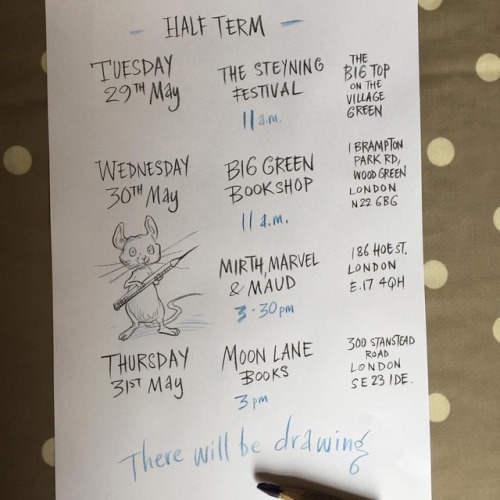 - HALF TERM -
TUESDAY
29TH May
THE STEYNING
FESTIVAL
11 a.m.
THE
BIG TOP
ON THE
VILLAGE
GREEN
WEDNESDAY
30TH May
BIG GREEN
BOOKSHOP
11 a.m.
1 BRAMPTON
PARK RD,
WOOD GREEN
LONDON
N22 6BG
MIRTH, MARVEL
& MAUD
3.30pm
186 HOE ST.
LONDON
E.17 4QH
THURSDAY
31ST May
MOON LANE
BOOKS
3pm
300 STANSTEAD
ROAD
LONDON
SE23 1DE.
There will be drawing